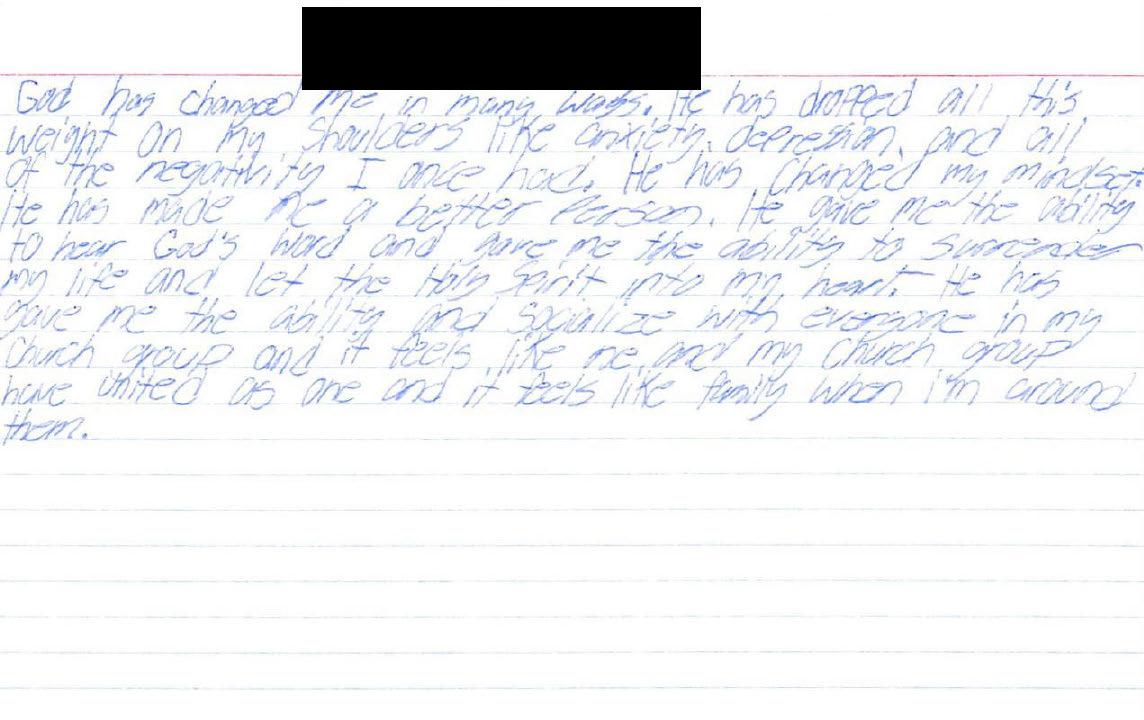 God has changed me in many ways. He has dropped all this
weight on my shoulders like anxiety, depression, and all
of the negativity I once had. He has changed my mindset.
He has made me a better person. He gave me the ability
to hear God's word and gave me the ability to surrender
my life and let the Holy Spirit into my heart. He has
gave me the ability and socialize with everyone in my
church group and it feels like me and my church group
have united as one and it feels like family when i'm around
them.